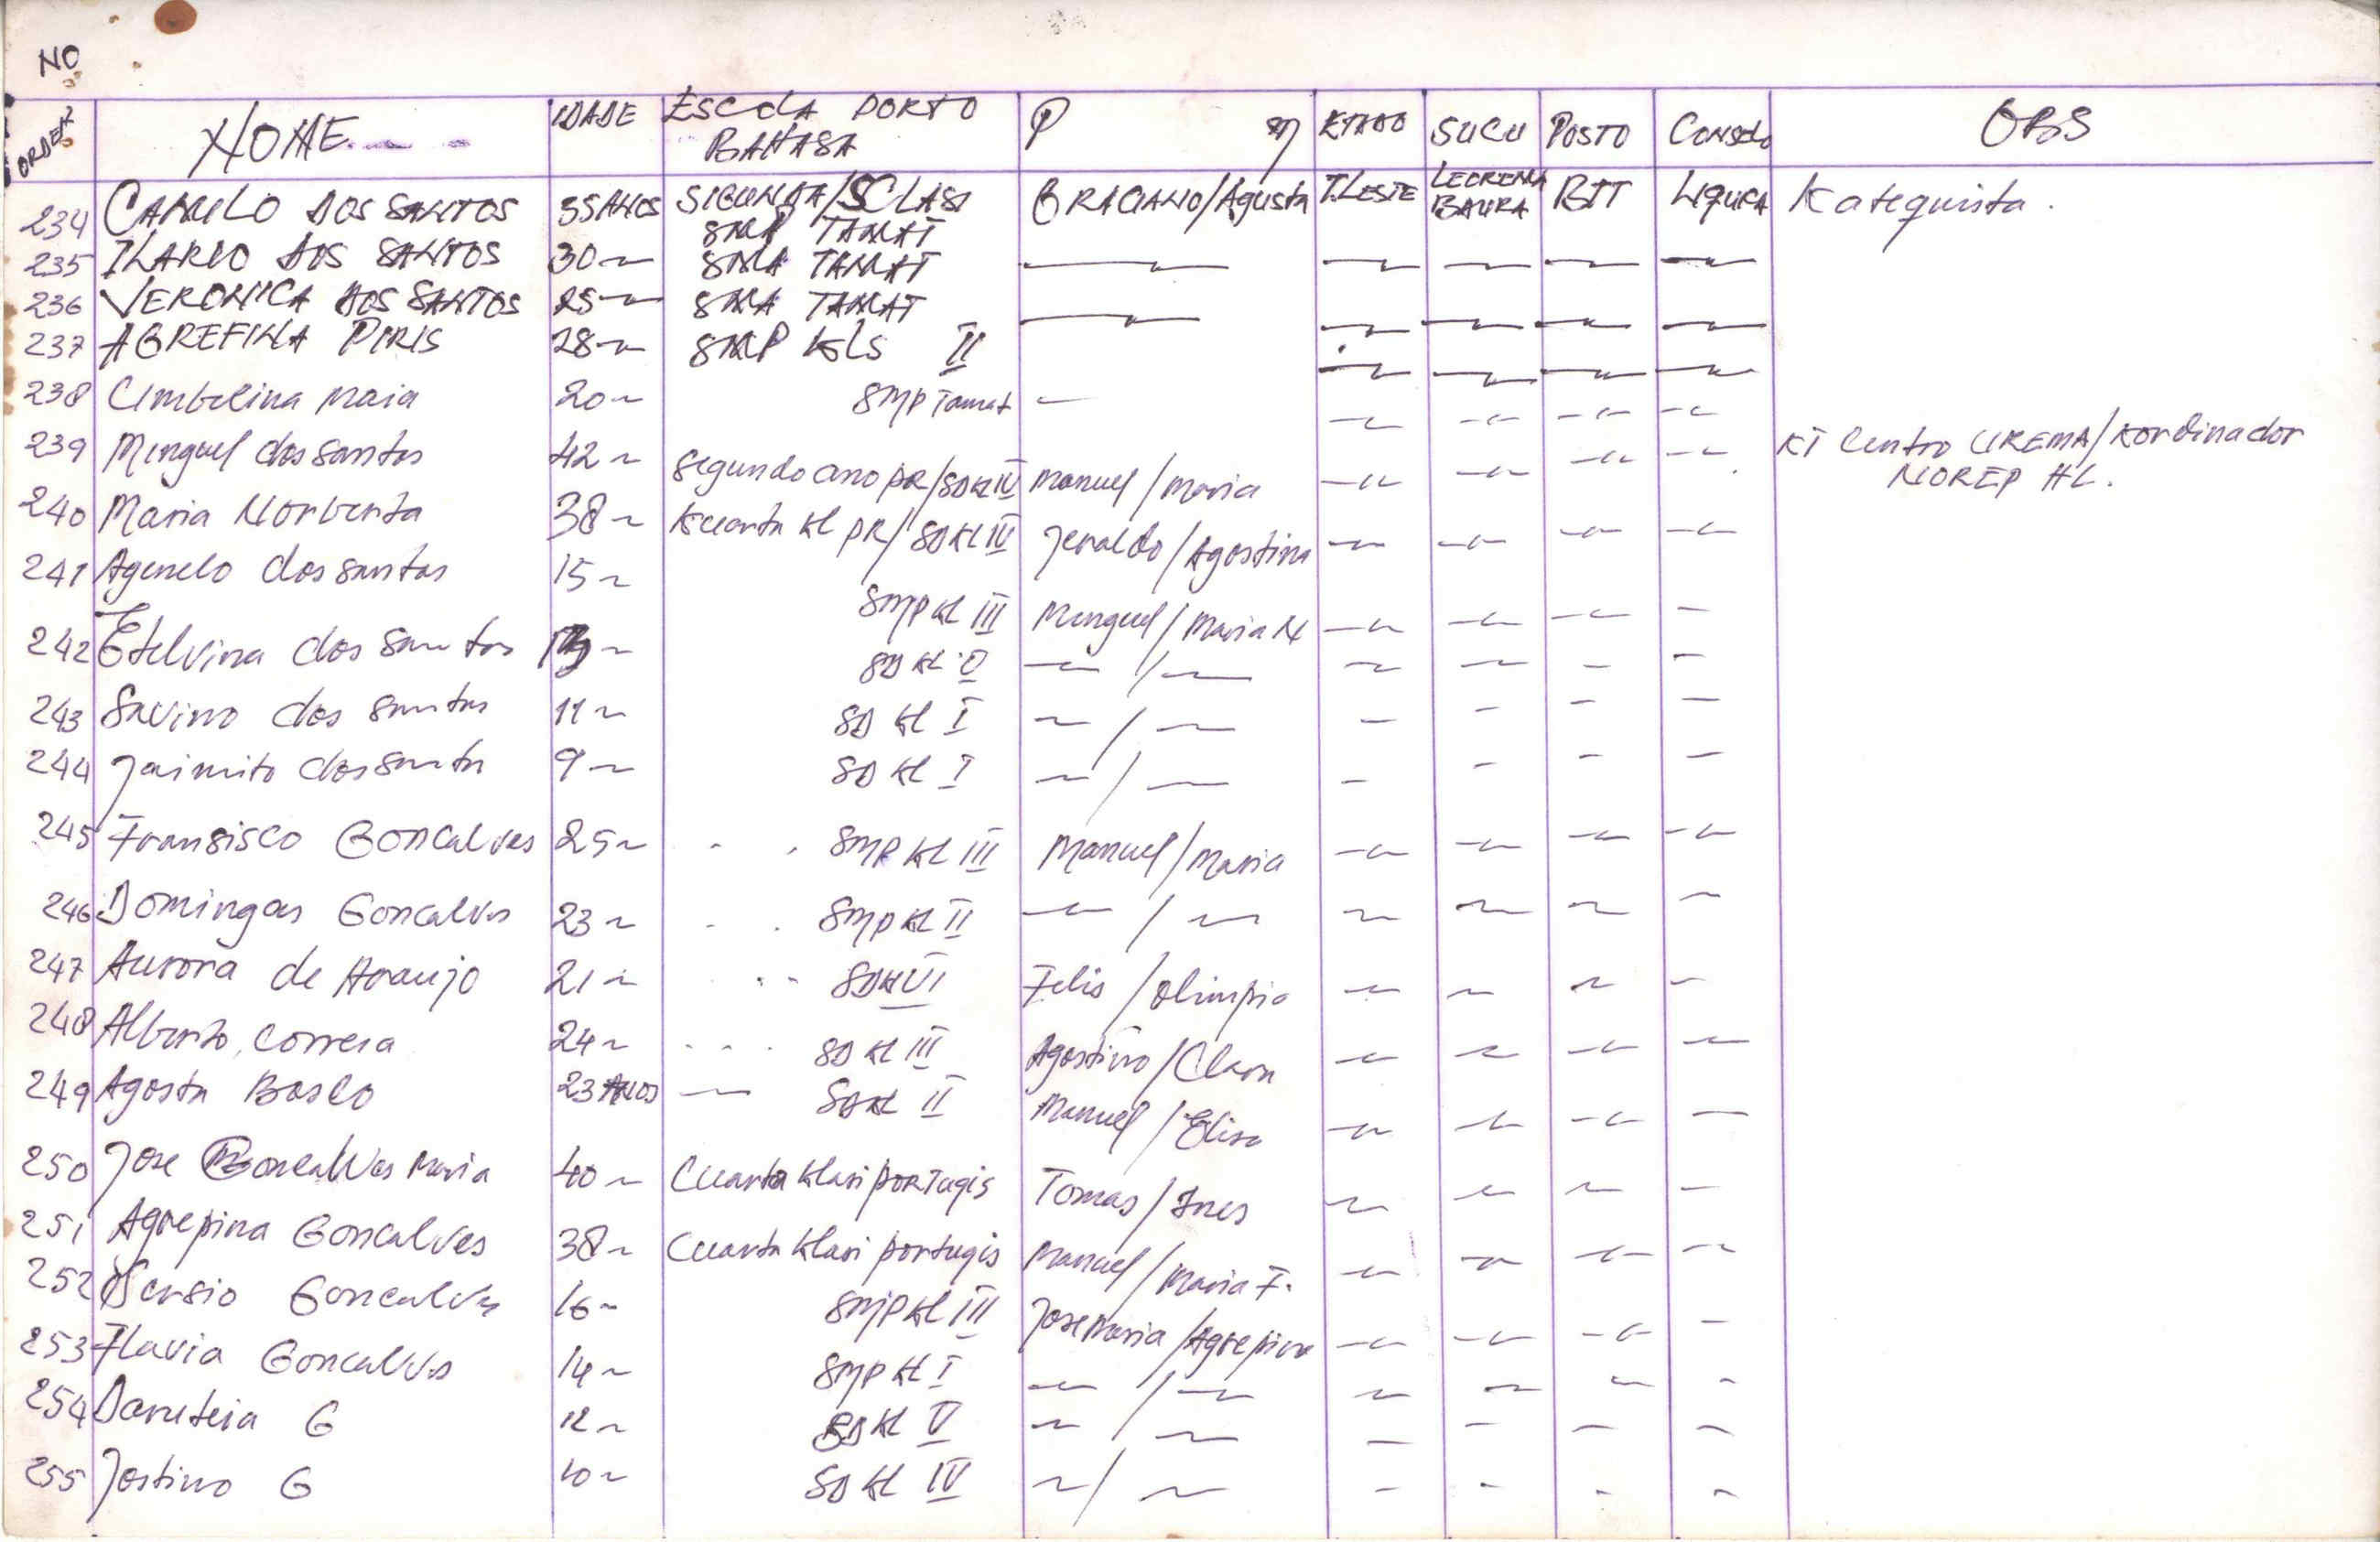 NO
ORDEM NOME IDADE ESCOLA PORTO BAHASA P M SUCU POSTO CONSELO OBS
234 CAMILO DOS SANTOS 35 ANOS SIGUNDA/SCLASI SMP TAMAT GRACIANO/Agusta T.LESTE LECREMA BAURA BTT LIQUIÇA Katequista.
235 ILARIO DOS SANTOS 30 ~ SMA TAMAT
236 VERONICA DOS SANTOS 25 ~ SMA TAMAT
237 AGREFINA PIRIS 28 ~ SMP KLS II
238 Cimbelina Maia 20 ~ SMP Tamat
239 Minguel dos santos 42 ~ Segundo ano PR/SD Kl IV Manuel / Maria KT Centro UREMA/Kordinador NOREP HL.
240 Maria Norberta 38 ~ Kuarta Kl PR/SD Kl IV Jeraldo / Agostina
241 Agenelo dos santos 15 ~ SMP Kl III Minguel / Maria N
242 Etelvina dos santos 13 ~ SD Kl V ~ / ~
243 Savino dos santos 11 ~ SD Kl I ~ / ~
244 Jaimito dos santos 9 ~ SD Kl I ~ / ~
245 Fransisco Goncalves 25 ~ SMP Kl III Manuel / Maria
246 Domingas Goncalves 23 ~ SMP Kl II ~ / ~
247 Aurora de Araujo 21 ~ SD Kl VI Felis / Olimpia
248 Alberto Correia 24 ~ SD Kl III Agostino / Clara
249 Agosta Baslo 23 ANOS SD Kl II Manuel / Elisa
250 Jose Goncalves Maria 40 ~ Cuarta Klasi portugis Tomas / Ines
251 Agrepina Goncalves 38 ~ Cuarta Klasi portugis Manuel / Maria F.
252 Dersio Goncalves 16 ~ SMP Kl III Jose Maria / Agrepina
253 Flavia Goncalves 14 ~ SMP Kl I ~ / ~
254 G 12 ~ SD Kl V ~ / ~
255 Jostino G 10 ~ SD Kl IV ~ / ~